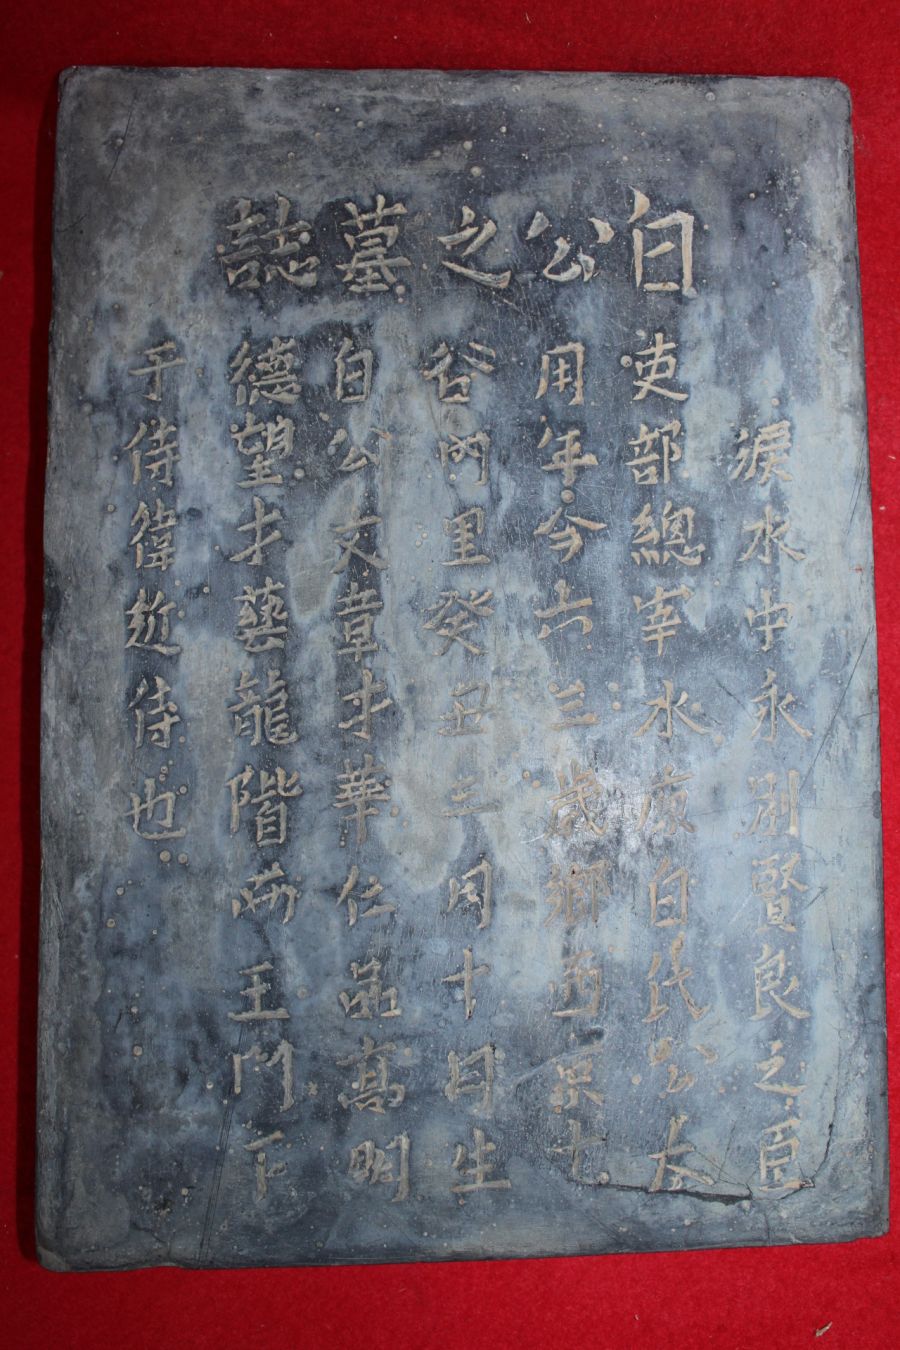 白公之墓誌
淚水中永別賢良之臣
吏部總宰水原白氏公太
用年今六三歲鄕西京十
谷內里癸丑三月十日生
白公文章才華仁品高明
德望才藝龍階 王門下
于侍 侍也